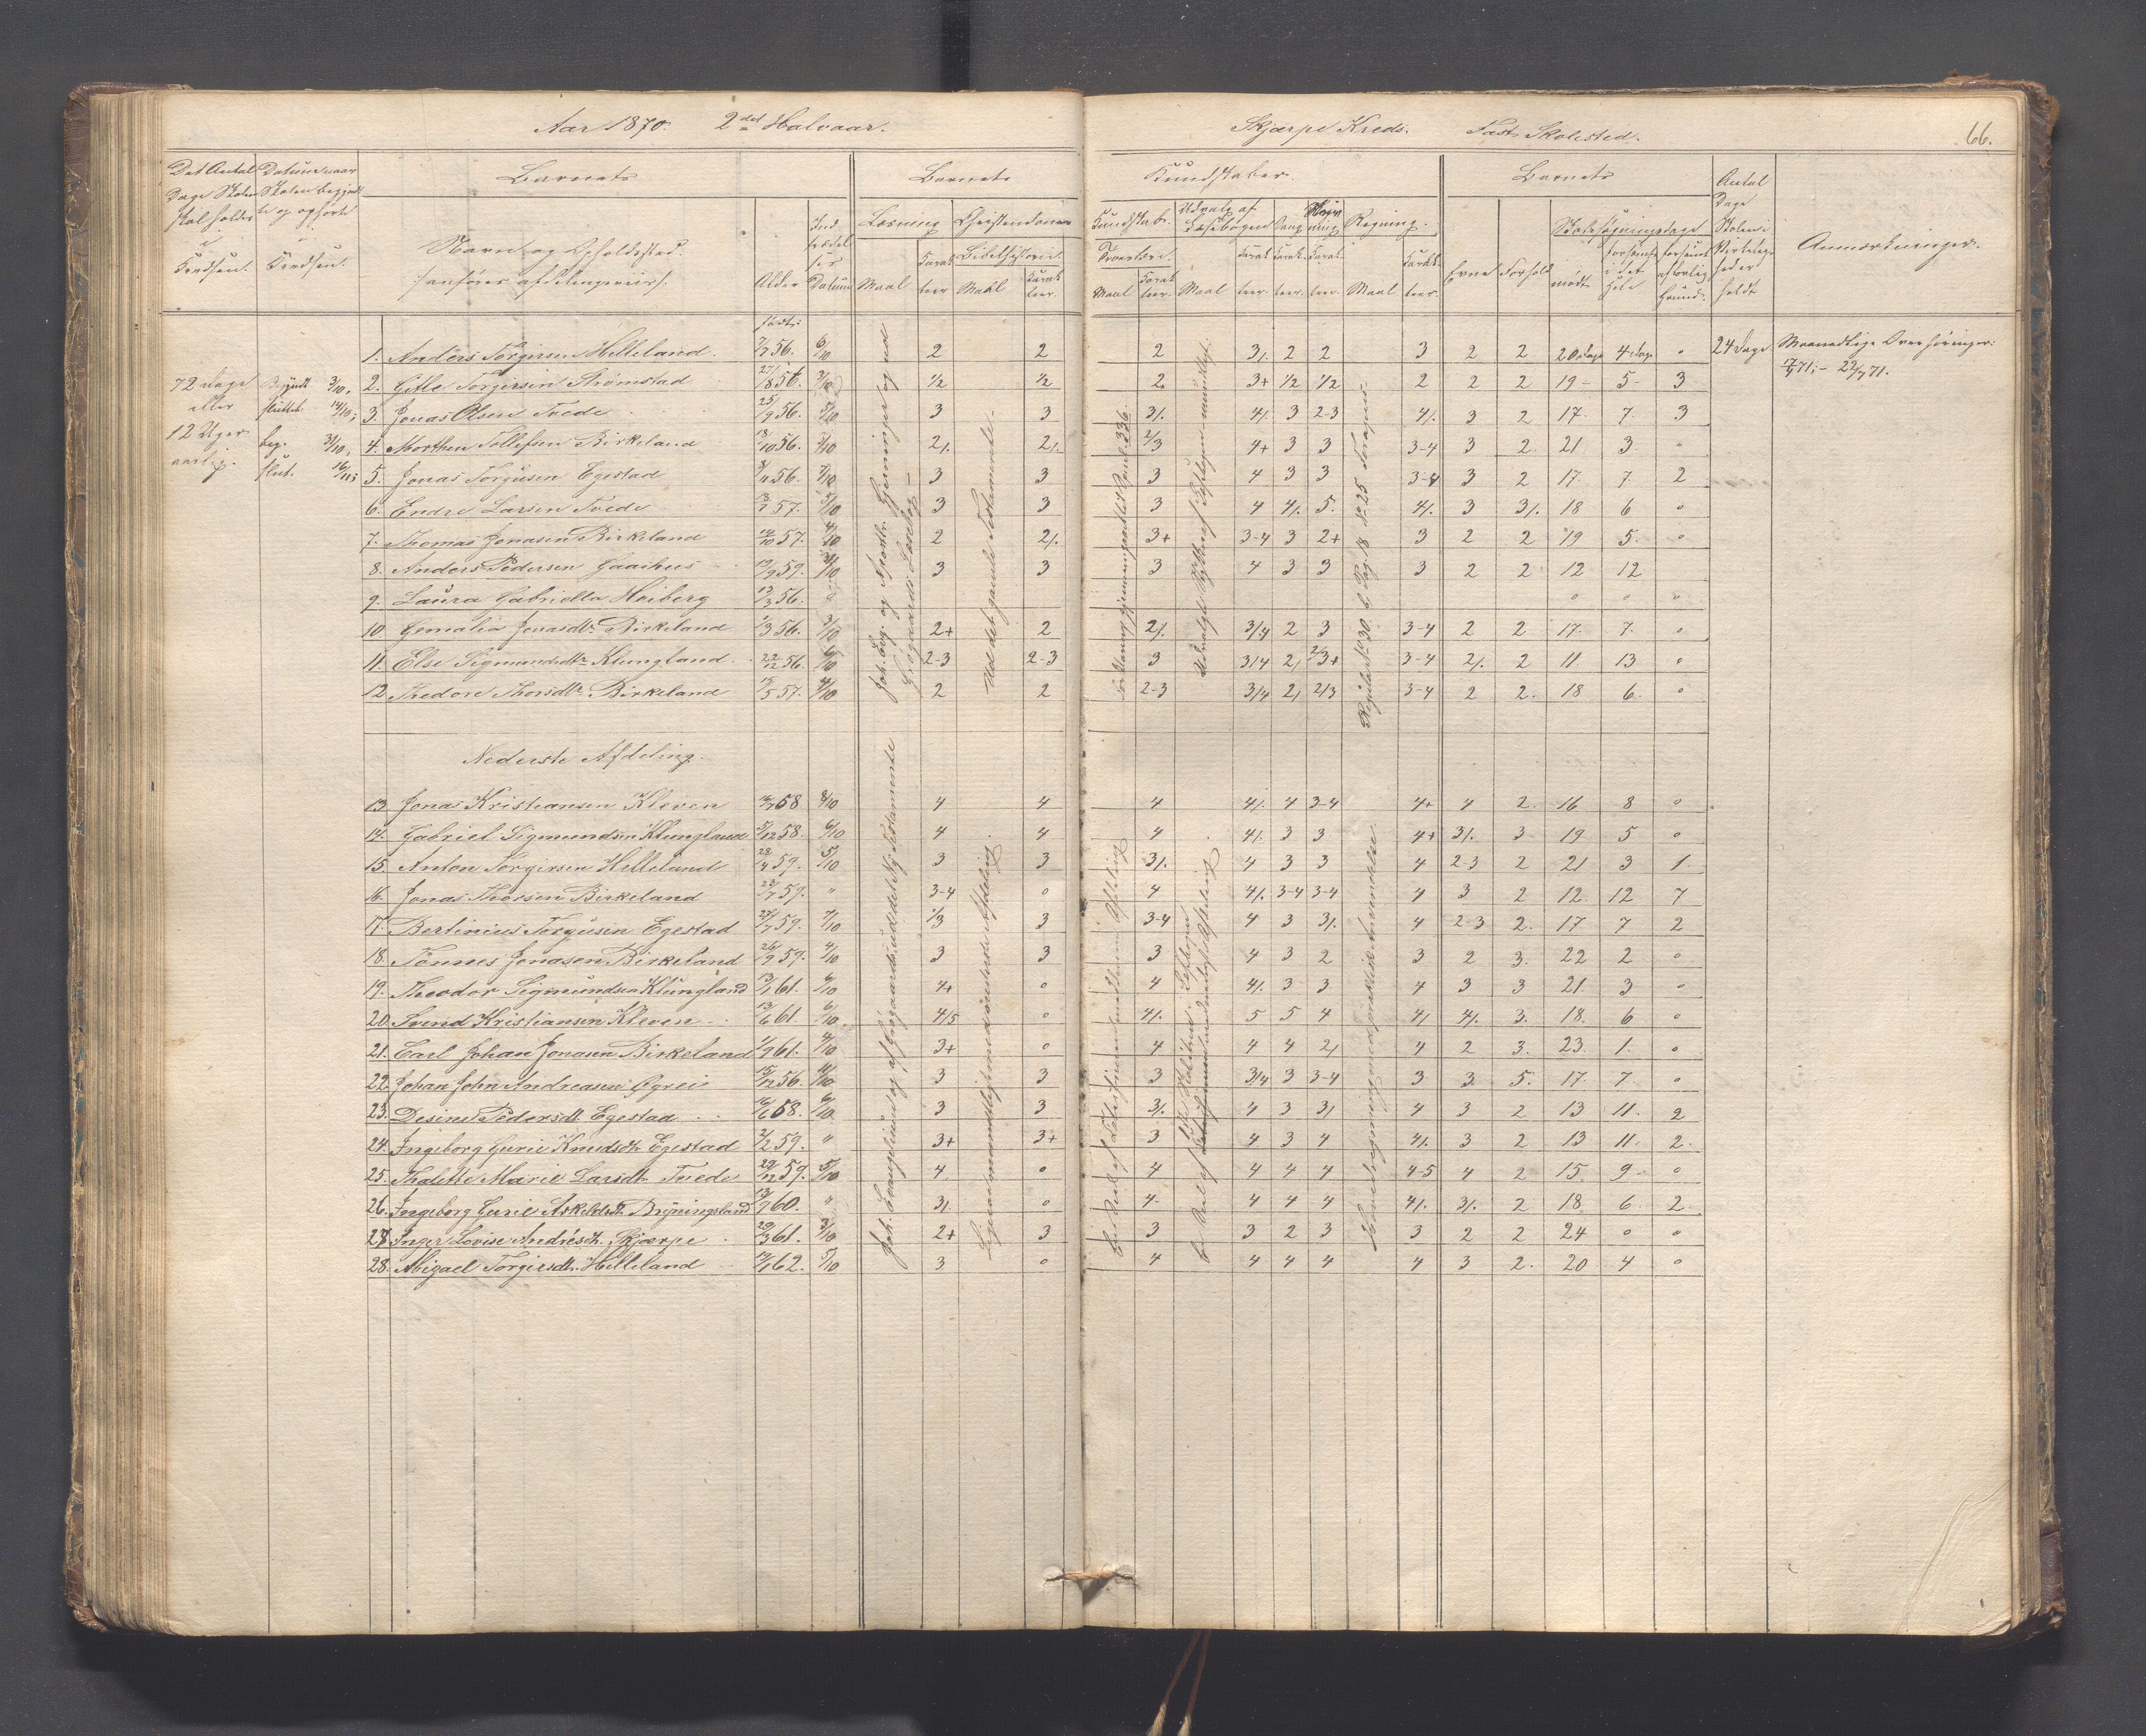 Aar 1870. 2det Halvaar.
Skjærpe Kreds. Fast Skolested.
66.
Det Antal Dage Skolen skal holdes i Kredsen.
Datum naar Skolen begyndte og ophørte i Kredsen.
Barnets
Navn og Opholdssted.
Alder
Indtrædelses Datum
Barnets
Læsning
Maal
Karakteer
Christendoms
Bibelhistorie.
Maal
Karakteer.
Kundskaber.
Kundskab.
Troeslære.
Maal
Karakteer.
Udvalg af Læsebogen
Maal
Karakteer.
Sang
Karakteer.
Skrivning
Karakteer.
Regning.
Maal
Karakteer.
Barnets
Evne
Forhold
Skolesøgningsdage
mødt
forsømt i det Hele
forsømt af lovlig Grund.
Antal Dage Skolen i Virkelighed er holdt
Anmærkninger.
72 Dage eller 12 Uger aarlig.
Begyndt 3/10,
sluttet 14/10;
beg. 31/10,
slut. 16/11;
Født:
1. Anders Torgersen Helleland 7/7 56. 6/10 2 2 2 3/. 2 2 3 2 2 20 Dage 4 Dage 0 24 Dage Maanedlige Overhøringer:
17/4 71; - 22/7 71.
2. Gitle Torgersen Strømstad 27/8 56. 3/10 1/2 1/2 2 3+ 1/2 1/2 2 2 2 19 - 5 - 3
3. Jonas Olsen Tvede 25/9 56. 5/10 3 3 3/. 4/. 3 2-3 4/. 3 2 17. 7. 3
4. Morthen Tollefsen Birkeland 13/10 56. 3/10 2/. 2/. 2/3 4+ 3 3 3-4 3 2. 21 3 "
5. Jonas Torgusen Egestad 56. 7/10 3 3 3 4 3 3 3-4 3 2 17. 7. 2
6. Endre Larsen Tvede 57. 5/10 3 3 3 4 4/. 5. 4/. 3 3/. 18 6 0
7. Thomas Jonasen Birkeland 57. 4/10 2 2/. 3+ 3-4 3 2+ 3 2 2 19 5. 0
8. Anders Pedersen Gaashus 19/9 59. 3 3 3 4 3 3 3 2 2 12 12
9. Laura Gabriella Høiberg 17/3 56. 0 0 0
10. Gemalia Jonasdtr. Birkeland 1/3 56. 3/10 2+ 2 2/. 3/4 2 3 3-4 2 2 17. 7. 0
11. Else Sigmundsdtr. Klungland 22/12 56. 6/10 2-3 2-3 3 3/4 2/ 2/3+ 3-4 2/. 2 11 13 0
12. Thedore Thorsdtr. Birkeland 57. 4/10 2 2 2-3 3/4 2/ 2/3 3-4 2 2. 18 6. 0
Nederste Afdeling.
13. Jonas Kristiansen Kleven 58 8/10 4 4 4 4/. 4 3-4 4+ 4 2. 16 8 0
14. Gabriel Sigmundsen Klungland 5/12 58. 6/10 4 4 4 4/. 3 3 4+ 3/. 3 19 5 0
15. Anton Torgersen Helleland 28/4 59. 5/10 3 3 3/. 4 3 3 4 2-3 2 21 3 1.
16. Jonas Thorsen Birkeland 23/7 59. " 3-4 0 4 4/. 3-4 3-4 4 3 2 12. 12 7
17. Bertinius Torgusen Egestad 27/7 59. 7/10 1/3 3 3-4 4 3 3/. 4 2-3 2. 17 7 2
18. Tønnes Jonasen Birkeland 26/9 59. 4/10 3 3 3 4 3 2 3 2 3. 22 2 0
19. Theodor Sigmundsen Klungland 13/1 61. 6/10 4+ 0 4 4/. 3 3 4 3 3 21. 3 0
20. Svend Kristiansen Kleven 13/6 61. 6/10 4/5 0 4/. 5 5 4 4/ 4/. 3. 18. 6 0
21. Carl Johan Jonasen Birkeland 1/9 61. 4/10 3+ 0 4 4 4 2/ 4 2 3. 23. 1. 0
22. Johan John Andreasen Øgrei 15/12 56. 4/10 3 3 3 3/4 3 3-4 3 3 5. 17. 7 0
23. Desine Pedersdt. Egestad 16/6 58. 6/10 3 3 3/. 4 3 3/ 4 3 2 13 11. 2
24. Ingeborg Gurie Knudsdt. Egestad 2/2 59. " 3+ 3+ 3 4 3 4 4/. 3 2 13 11. 2.
25. Thalette Marie Larsdt. Tvede 29/12 59. 5/10 4 0 4 4 4 4 4-5 4 2 15. 9 - 0
26. Ingeborg Gurie Askeldsdt. Bryningsland 60. " 3/. 0 4- 4 4 4 4/. 3/. 2 18. 6. 2.
27. Inger Lovise Andresdt. Skjærpe 20/3 61. 3/10 2+ 3 3 3 2 3 3 2 2 24 0 0
28. Abigael Torgersdt. Helleland 62. 5/10 3 0 4 4 4 4 4 3 2. 20 4 0